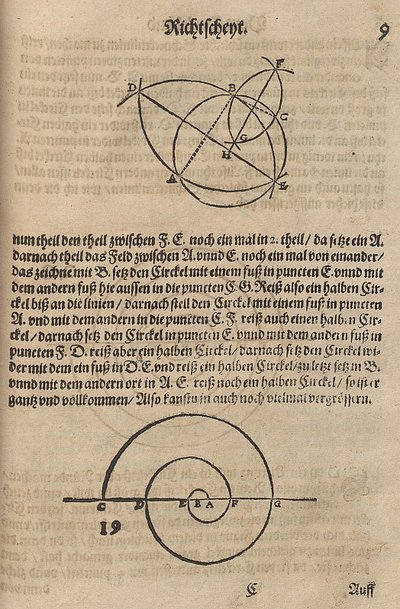 Richtscheyt. 9
F
D B
C
G
H
A E
nun theil den theil zwischen F. E. noch ein mal in 2. theil/ da setze ein A.
darnach theil das Feld zwischen A. vnnd E. noch ein mal von einander/
das zeichne mit B. setz den Circkel mit einem fuß in puncten E. vnnd mit
dem andern fuß hie aussen in die puncten C. G. Reiß also ein halben Cir-
ckel biß an die linien/ darnach stell den Circkel mit einem fuß in puncten
A. vnd mit dem andern in die puncten E. F. reiß auch einen halben Cir-
ckel/ darnach setz den Circkel in puncten E. vnnd mit dem andern fuß in
puncten F. D. reiß aber ein halben Circkel/ darnach setz den Circkel wi-
der mit dem ein fuß in D. E. vnd reiß ein halben Circkel/ zu letzt setz in B.
vnnd mit dem andern ort in A. E. reiß noch ein halben Circkel/ so ist er
gantz vnd vollkommen/ Also kanstu in auch noch vielmal vergrössern.
C D E B A F G
19
C Auff